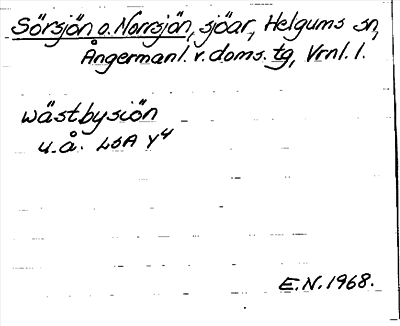 Sörsjön o. Norrsjön, sjöar, Helgums sn,
Ångermanl. v. doms. tg, Vrnl. l.
wästbysiön
u.å. LSA Y4
E.N. 1968.